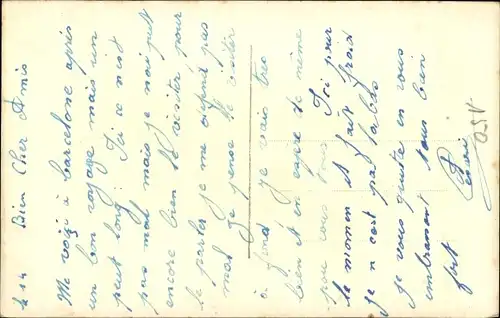 le 14 Bien Cher Amis
Me voiçi à barcelone après
un bon voyage mais un
peut long. Ici ce n'est
pas mal mais je n'ai put
encore bien le visiter pour
le parler je me défend pas
mal je pense le visiter
à fond je vais très
bien et en espere de même
pour vous tous Ici pour
le moment il fait froid
je n'est pas
je vous quitte en vous
embrassant tous bien
fort